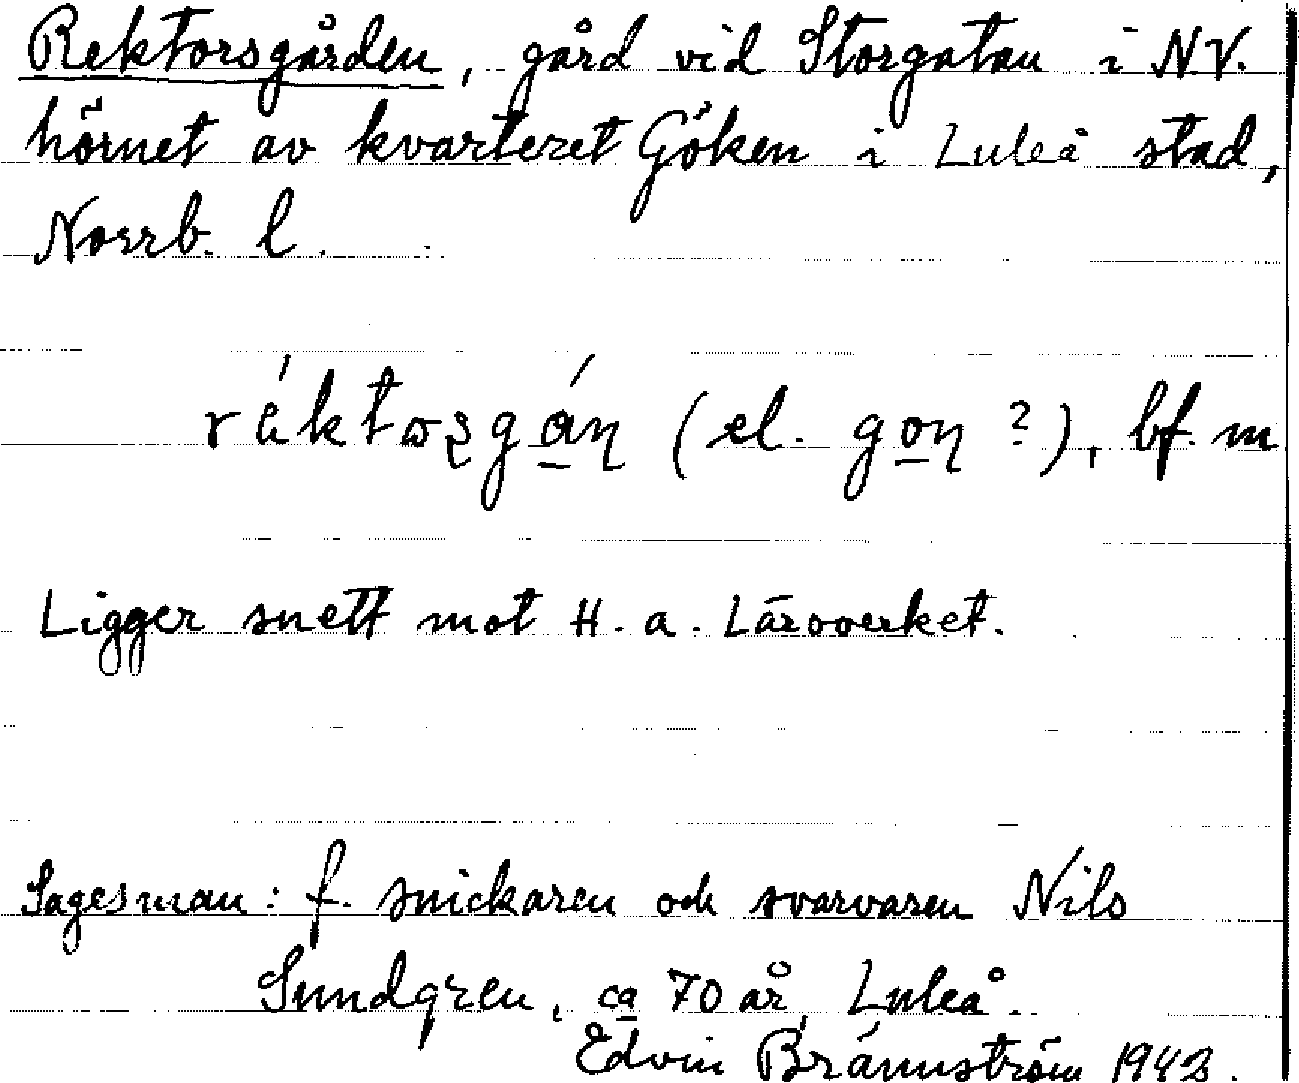 Rektorsgården, gård vid Storgatan i NV.
hörnet av kvarteret Göken i Luleå stad,
Norrb. l.
(el. gon ?), bf. m
Ligger snett mot H. a. Läroverket.
Sagesman: f. snickaren och svarvaren Nils
Sundgren, ca 70 år, Luleå.
Edvin Brännström 1942.